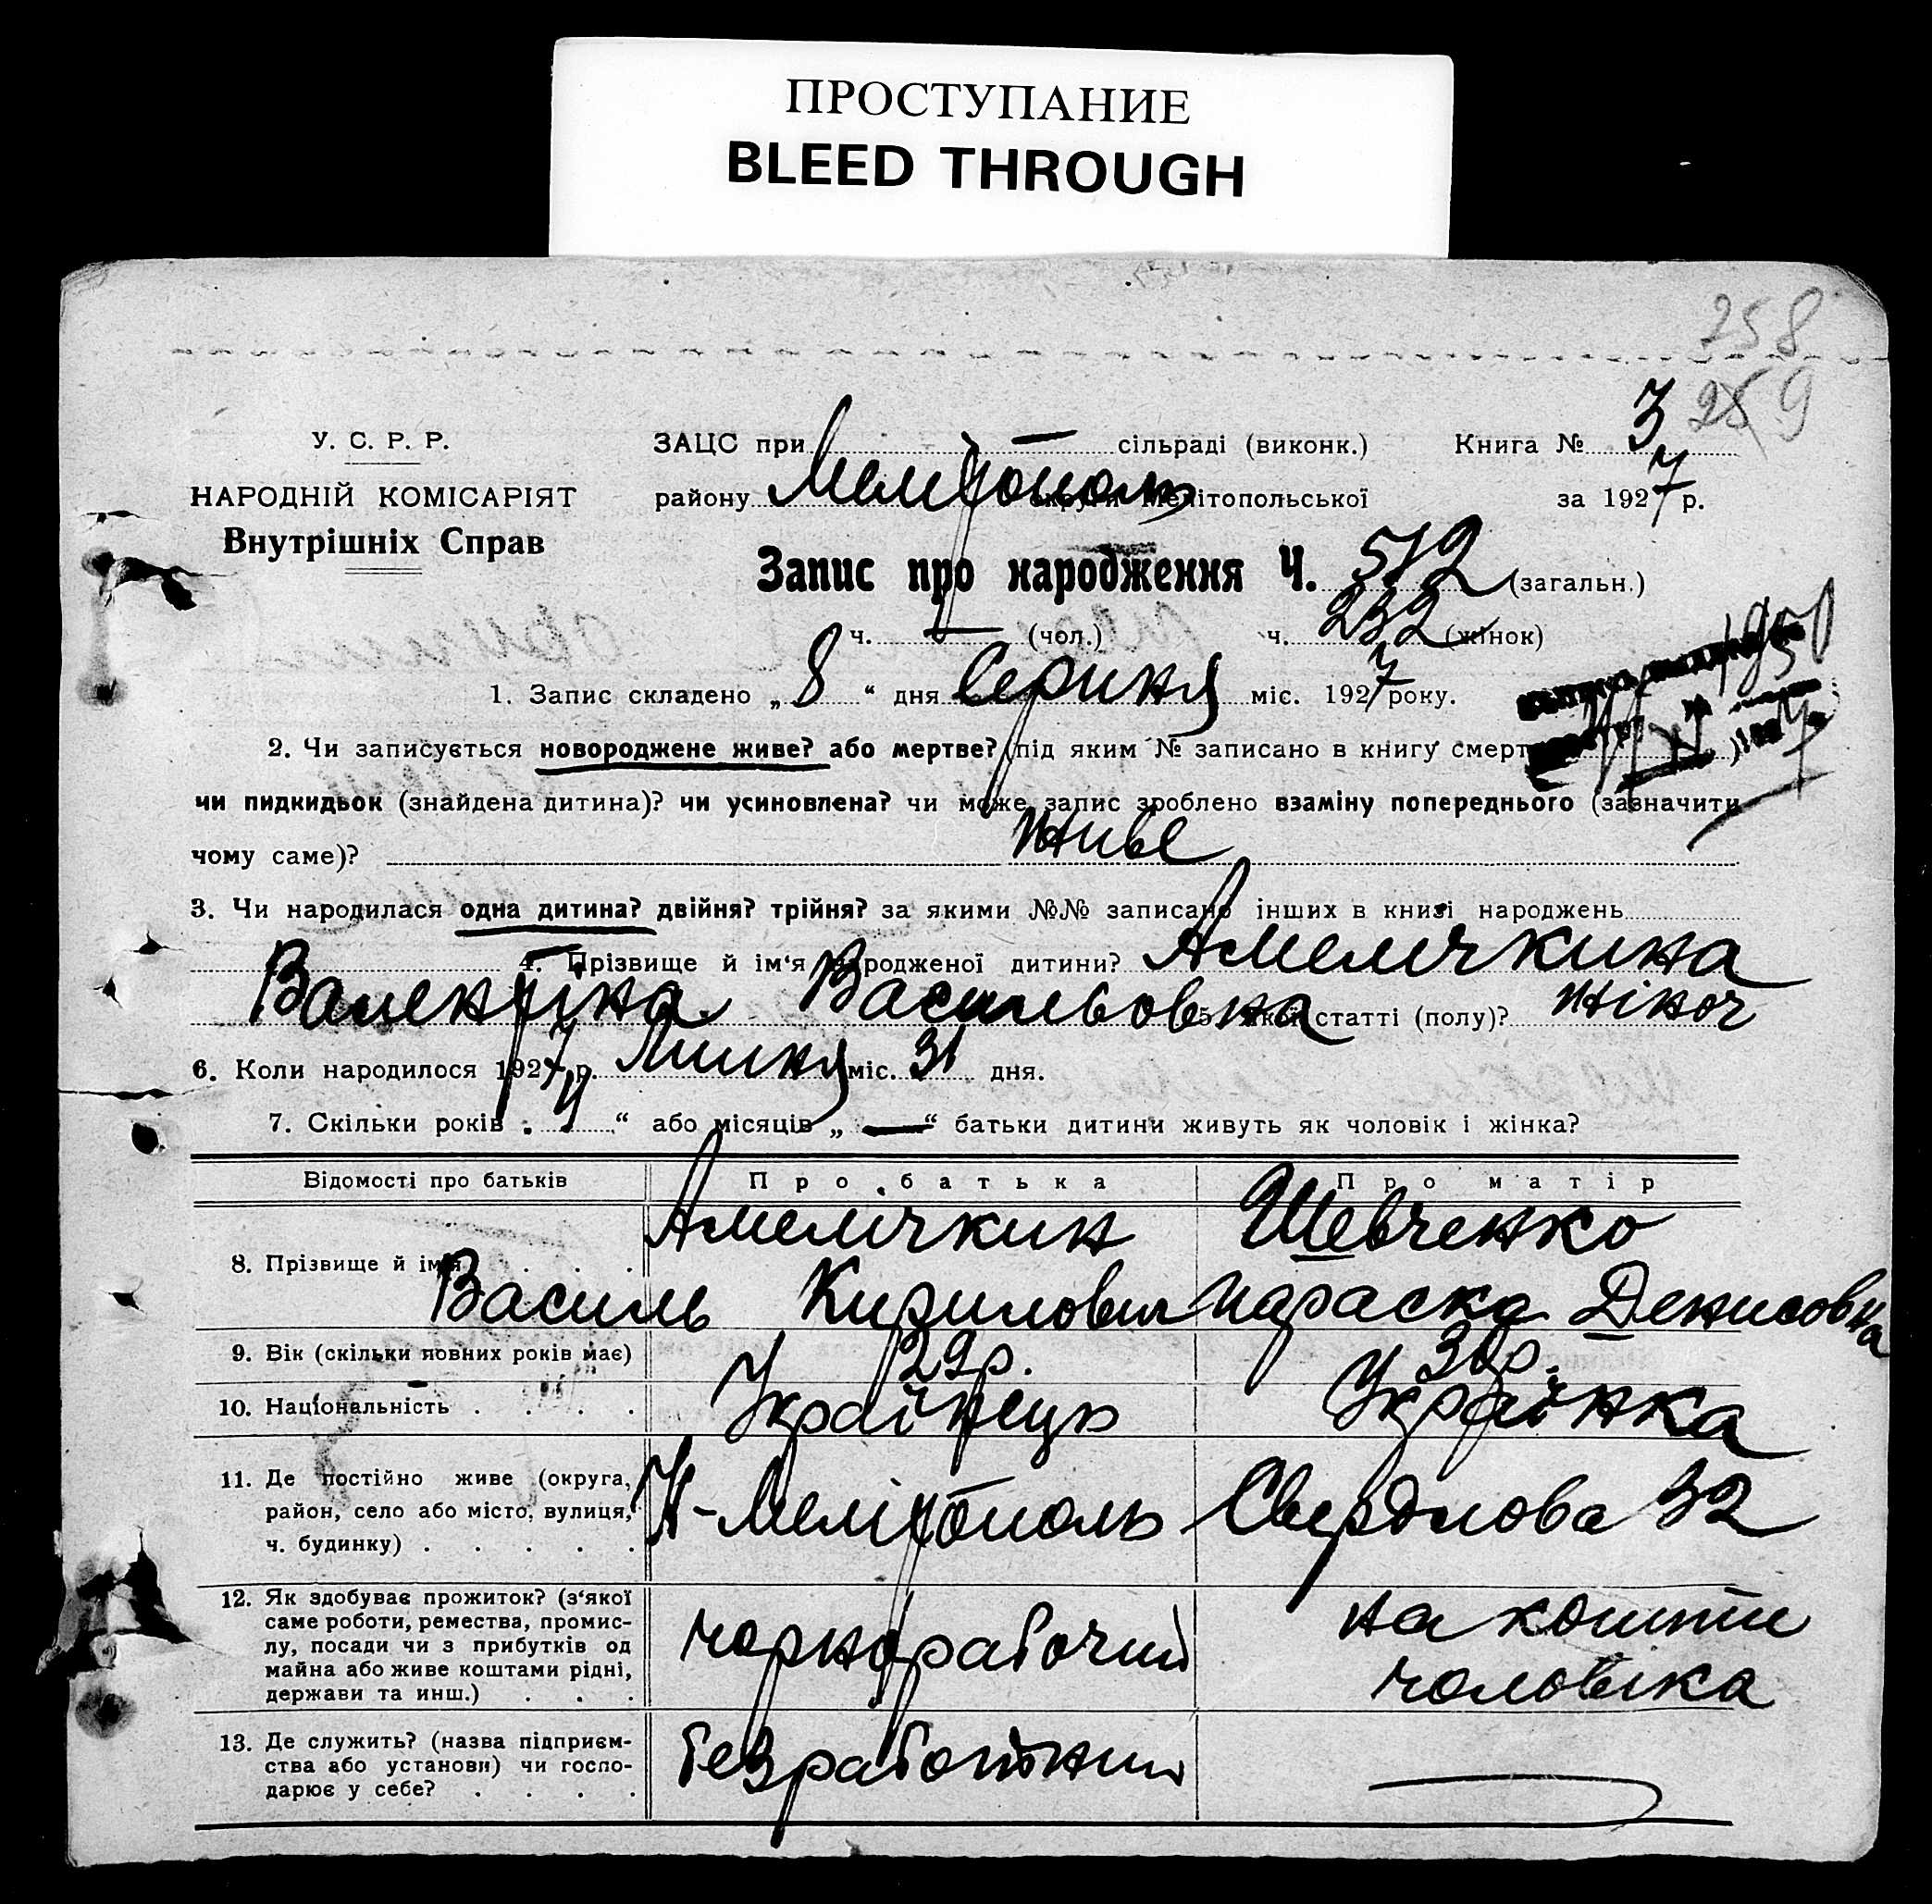 ПРОСТУПАНИЕ
BLEED THROUGH
258
259
У. С. Р. Р.
НАРОДНІЙ КОМІСАРІЯТ
Внутрішніх Справ
ЗАЦС при — сільраді (виконк.) Книга № 3
району Мелітополь округи Мелітопольської за 1927 р.
Запис про народження Ч. 512 (загальн.)
ч. — (чол.) ч. 232 (жінок)
1. Запис складено „8“ дня Серпня міс. 1927 року.
1950
2. Чи записується новороджене живе? або мертве? (під яким № записано в книгу смерт )
чи пидкидьок (знайдена дитина)? чи усиновлена? чи може запис зроблено взаміну попереднього (зазначити
чому саме)? живе
3. Чи народилася одна дитина? двійня? трійня? за якими №№ записано інших в книзі народжень
4. Прізвище й ім‘я народженої дитини? Амелічкина
Валентіна Васильовна 5. якої статті (полу)? жіноч
6. Коли народилося 1927 р. Липня міс. 31 дня.
7. Скільки років „ 4 “ або місяців „ — “ батьки дитини живуть як чоловік і жінка?
Відомості про батьків Про батька Про матір
8. Прізвище й ім‘я Амелічкин Шевченко
Василь Кирилович Параска Денисовна
9. Вік (скільки повних років має) 29р. 30р.
10. Національність Українець Українка
11. Де постійно живе (округа,
район, село або місто, вулиця,
ч. будинку) Мелітополь Свердлова 32
12. Як здобуває прожиток? (з‘якої
саме роботи, ремества, промис-
лу, посади чи з прибутків од
майна або живе коштами рідні,
держави та инш.) чорнорабочий на кошти
чоловіка
13. Де служить? (назва підприєм-
ства або установи) чи госпо-
дарює у себе? безработний —